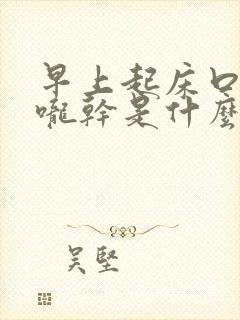 早上起床口
嚨幹是什麼
吴堅